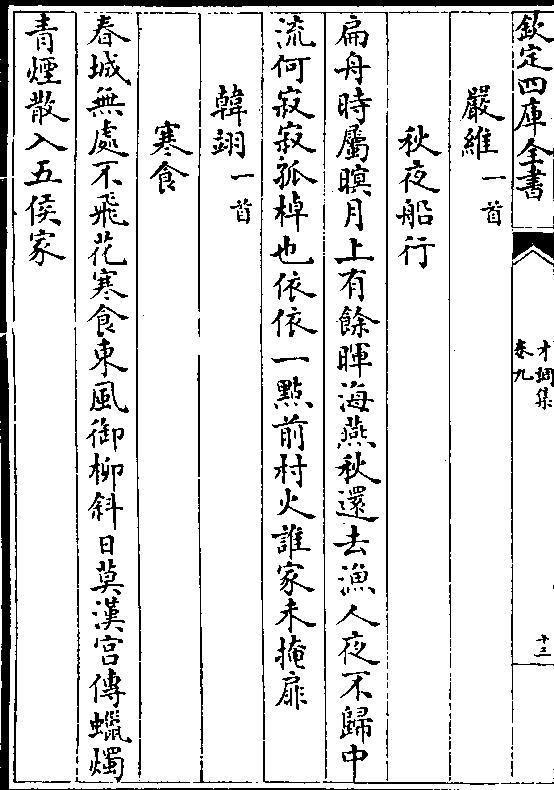 欽定四庫全書
才調集
卷九
十三
嚴維一首
秋夜船行
扁舟時屬暝月上有餘暉海燕秋還去漁人夜不歸中
流何寂寂孤棹也依依一點前村火誰家未掩扉
韓翃一首
寒食
春城無處不飛花寒食東風御柳斜日莫漢宫傳蠟燭
青煙散入五侯家